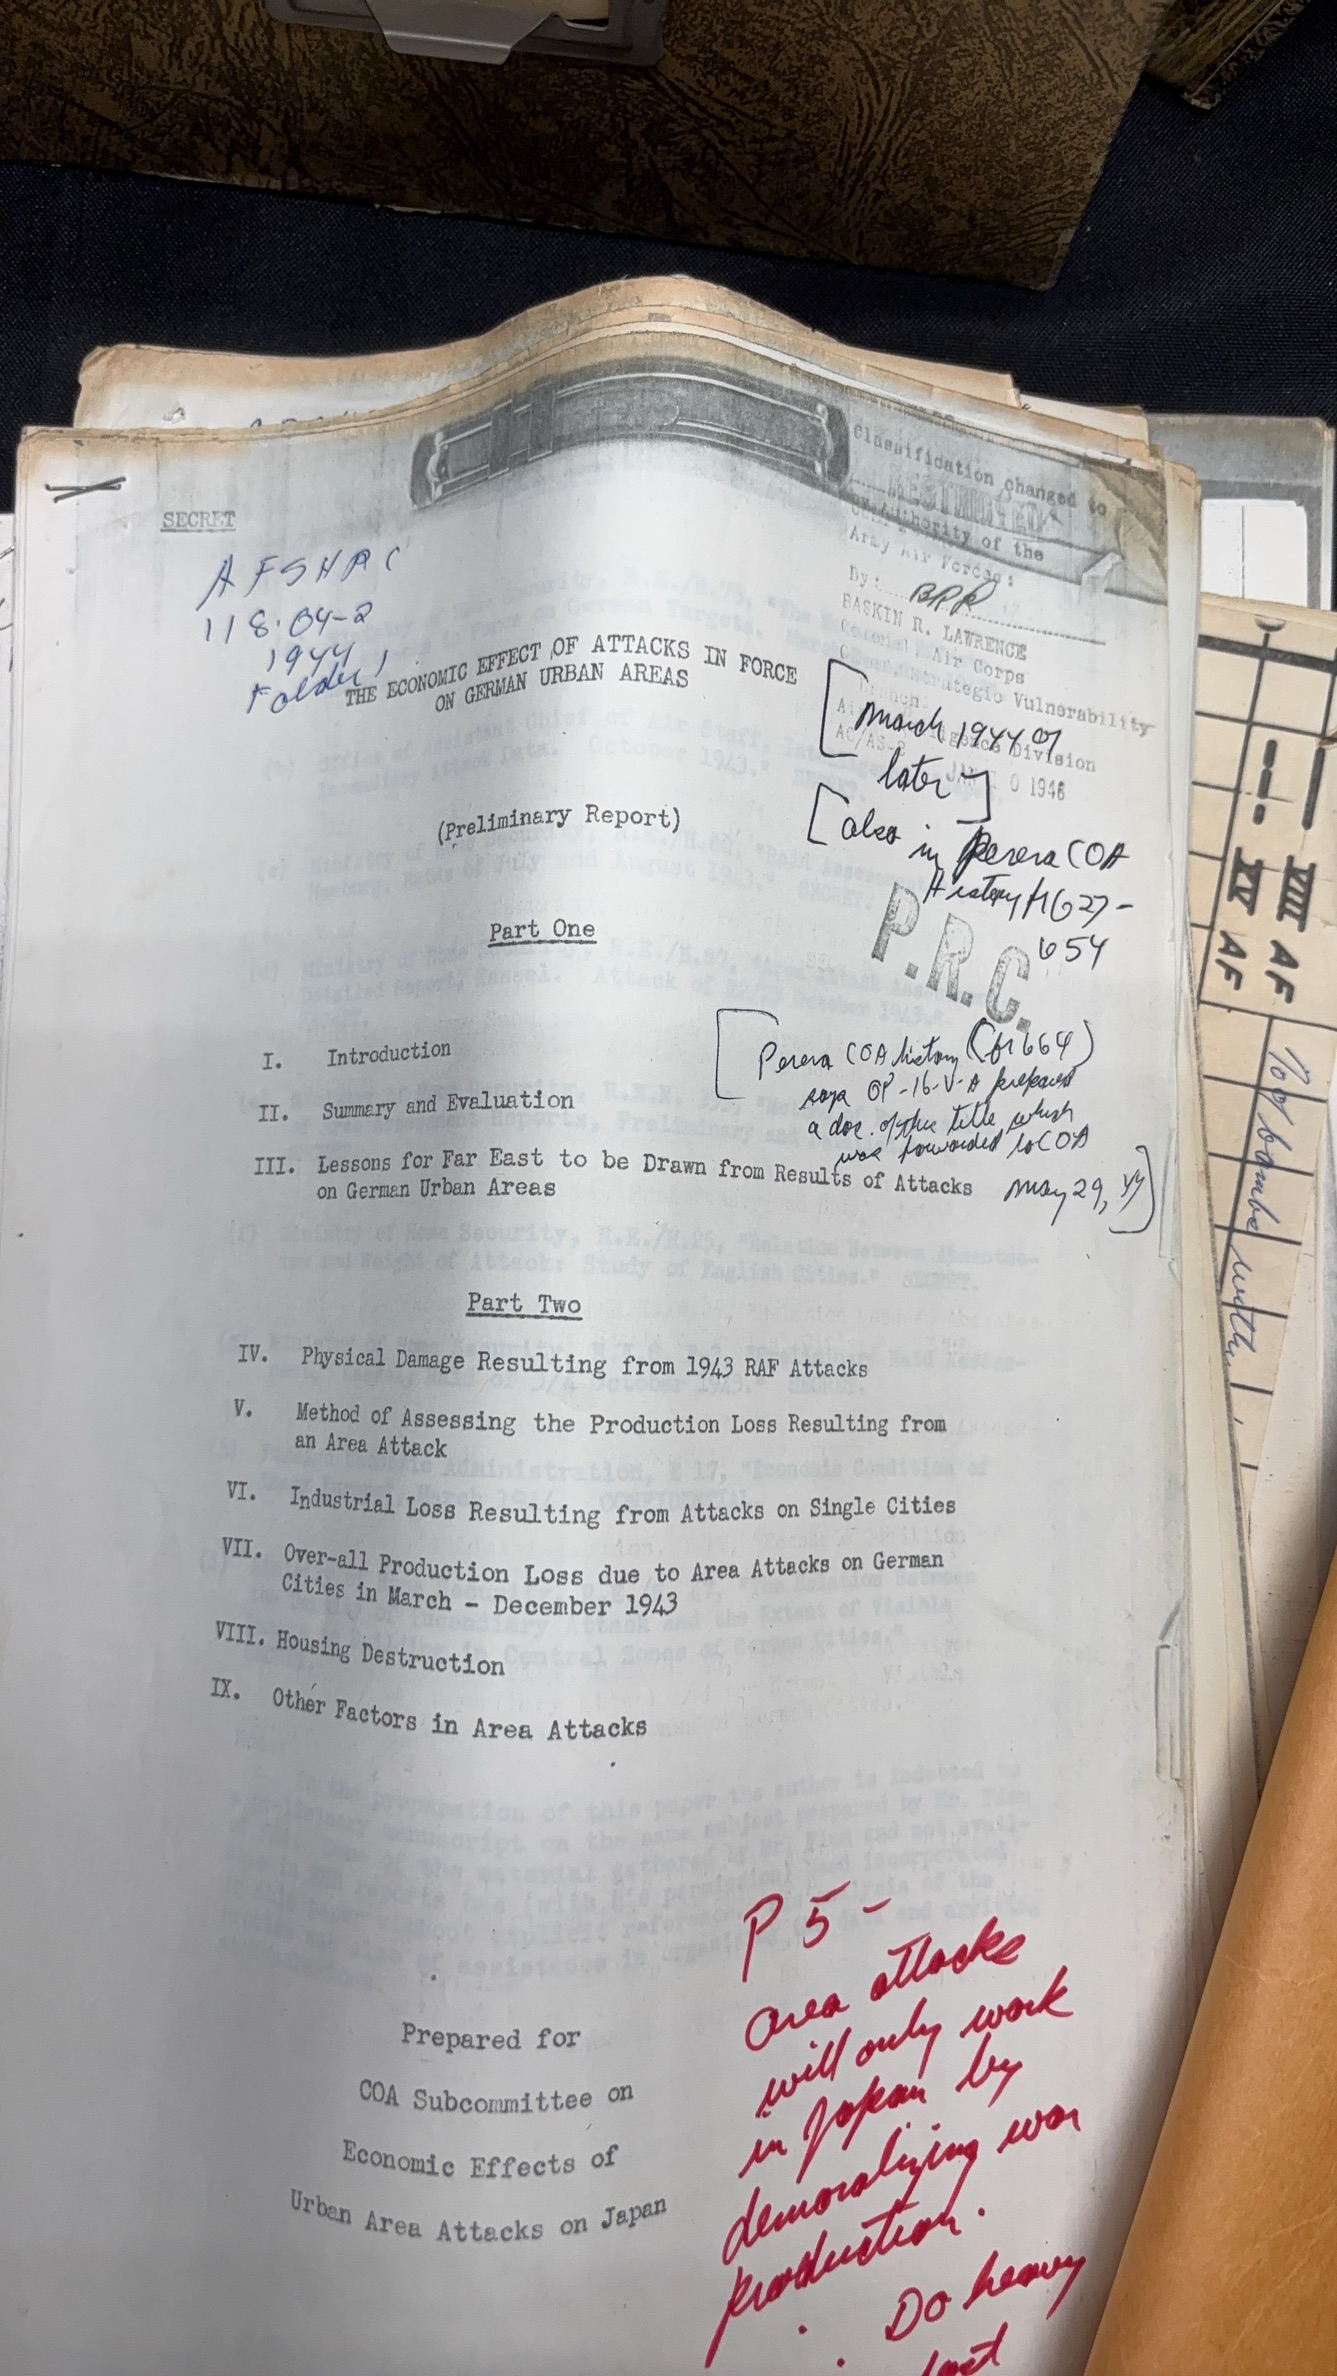 SECRET
AFSHRC
118.04-2
1944
Folder 1
Classification changed to
RESTRICTED
by Authority of the
Army Air Forces:
By:
BASKIN R. LAWRENCE
Colonel, Air Corps
Strategic Vulnerability
Branch
Division
JAN 0 1946
THE ECONOMIC EFFECT OF ATTACKS IN FORCE
ON GERMAN URBAN AREAS
[March 1944 or
later]
(Preliminary Report)
[also in Perera COA
History
654
P.R.C.
Part One
[Perera COA history (fr 664)
says OP-16-V-A prepared
a doc. of this title which
was forwarded to COA
May 29, 44]
I. Introduction
II. Summary and Evaluation
III. Lessons for Far East to be Drawn from Results of Attacks
on German Urban Areas
Part Two
IV. Physical Damage Resulting from 1943 RAF Attacks
V. Method of Assessing the Production Loss Resulting from
an Area Attack
VI. Industrial Loss Resulting from Attacks on Single Cities
VII. Over-all Production Loss due to Area Attacks on German
Cities in March - December 1943
VIII. Housing Destruction
IX. Other Factors in Area Attacks
Prepared for
COA Subcommittee on
Economic Effects of
Urban Area Attacks on Japan
P 5 -
area attacks
will only work
in Japan by
demoralizing war
production.
Do heavy
VIII AF
XV AF
% of bombs with